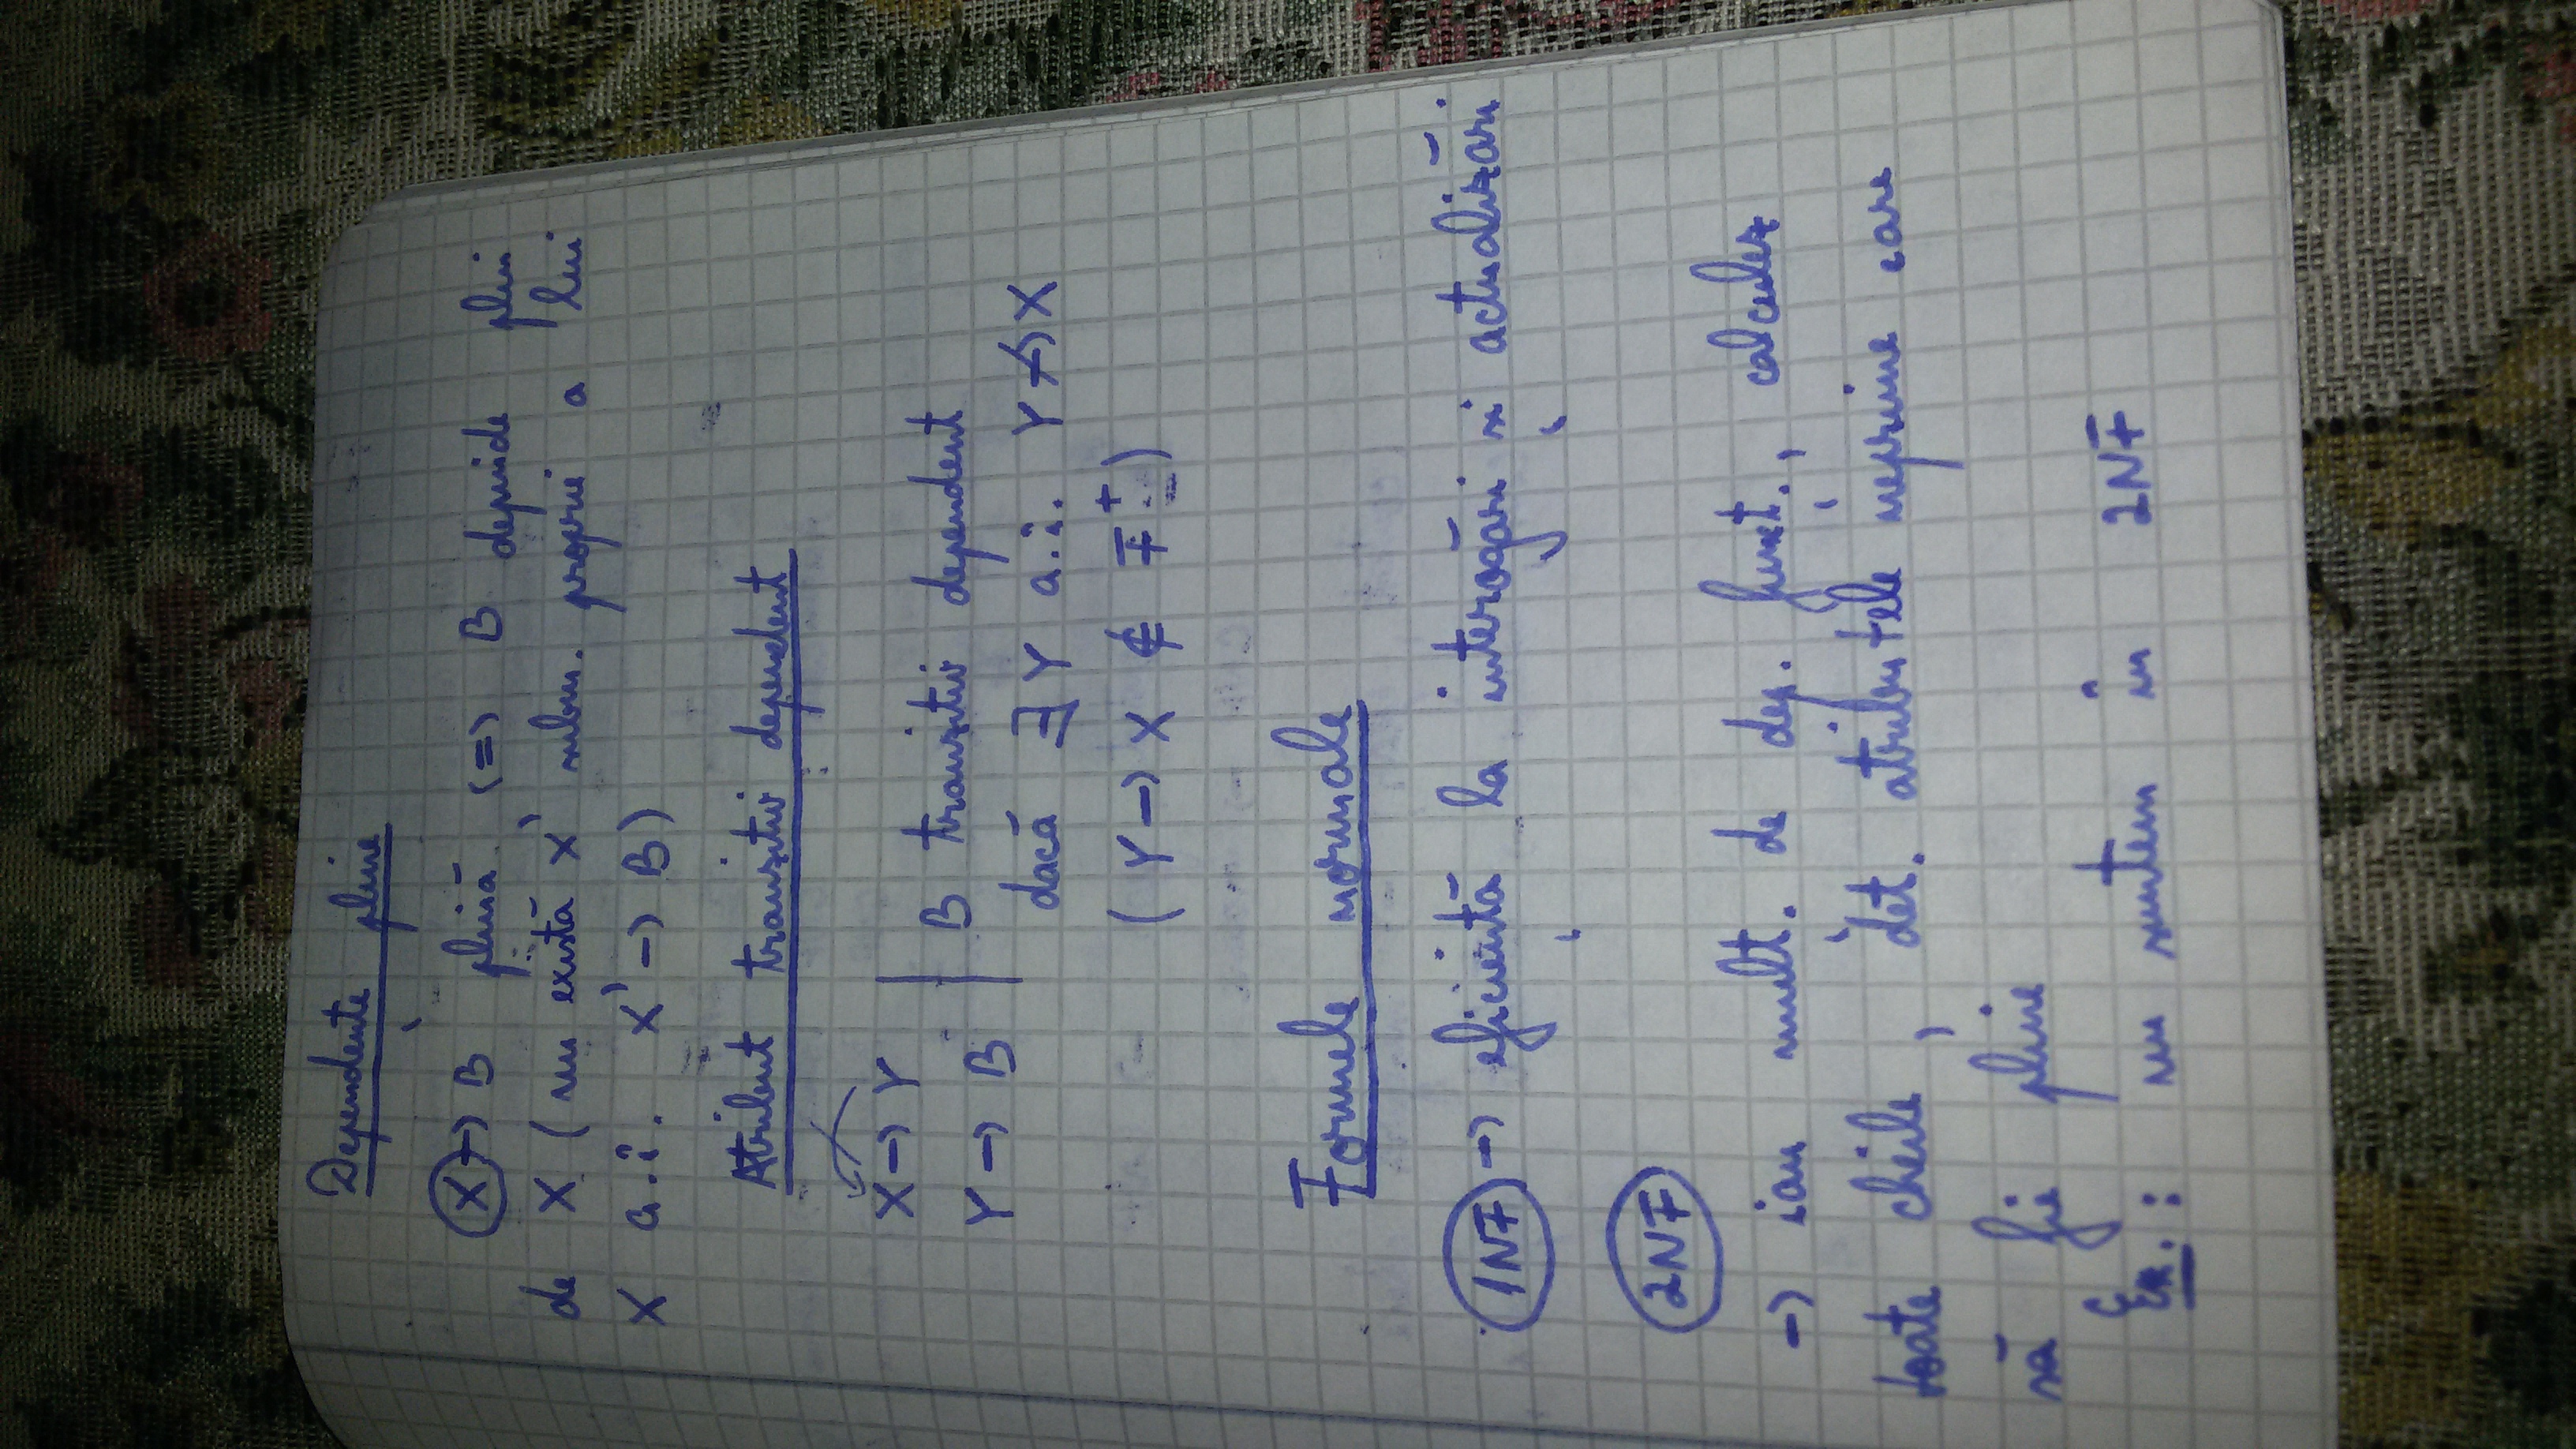 Dependențe pline
X → B plină <=> B depinde plin
de X (nu există X' subm. proprie a lui
X a.î. X' → B)
Atribut tranzitiv dependent
X → Y
Y → B
B tranzitiv dependent
dacă ∃ Y a.î. Y ↛ X
(Y → X ∉ F⁺)
Formele normale
1NF → eficiență la interogări și actualizări
2NF
→ iau mulț. de dep. funcț., calculez
toate cheile, det. atributele neprime care
să fie pline
Ex.: nu suntem în 2NF